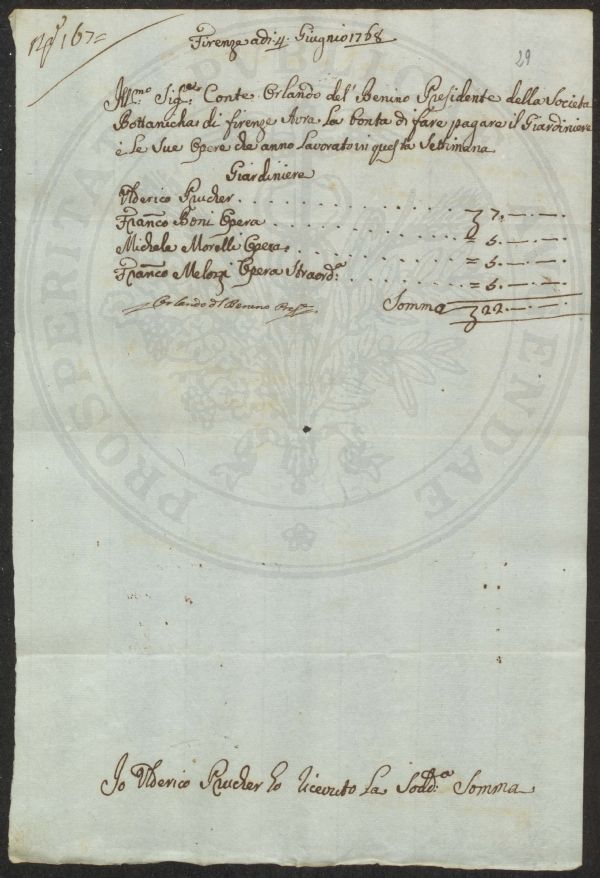 Nº 167=
Firenze adi 4. Giugnio 1768
29
Ill.mo Sig.re Conte Orlando del' Benino Presidente della Societa
Bottanicha di firenze Avra La bonta di fare pagare il Giardiniere
e Le Sue Opere che anno Lavorato in questa Settimana
Giardiniere
Ulderico Prucher . . . . . . . . . . . . 7. — . —
Franco Boni Opera . . . . . . . . . . = 5. — . —
Michele Morelli Opera . . . . . . . . = 5. — . —
Franco Melozi Opera Straord.a . . . . . . = 5. — . —
Orlando del Benino Pres.e Somma 22. — . —
Io Ulderico Prucher ho ricevuto La Sodd.a Somma
PROSPERITATI PUBLICAE AUGENDAE